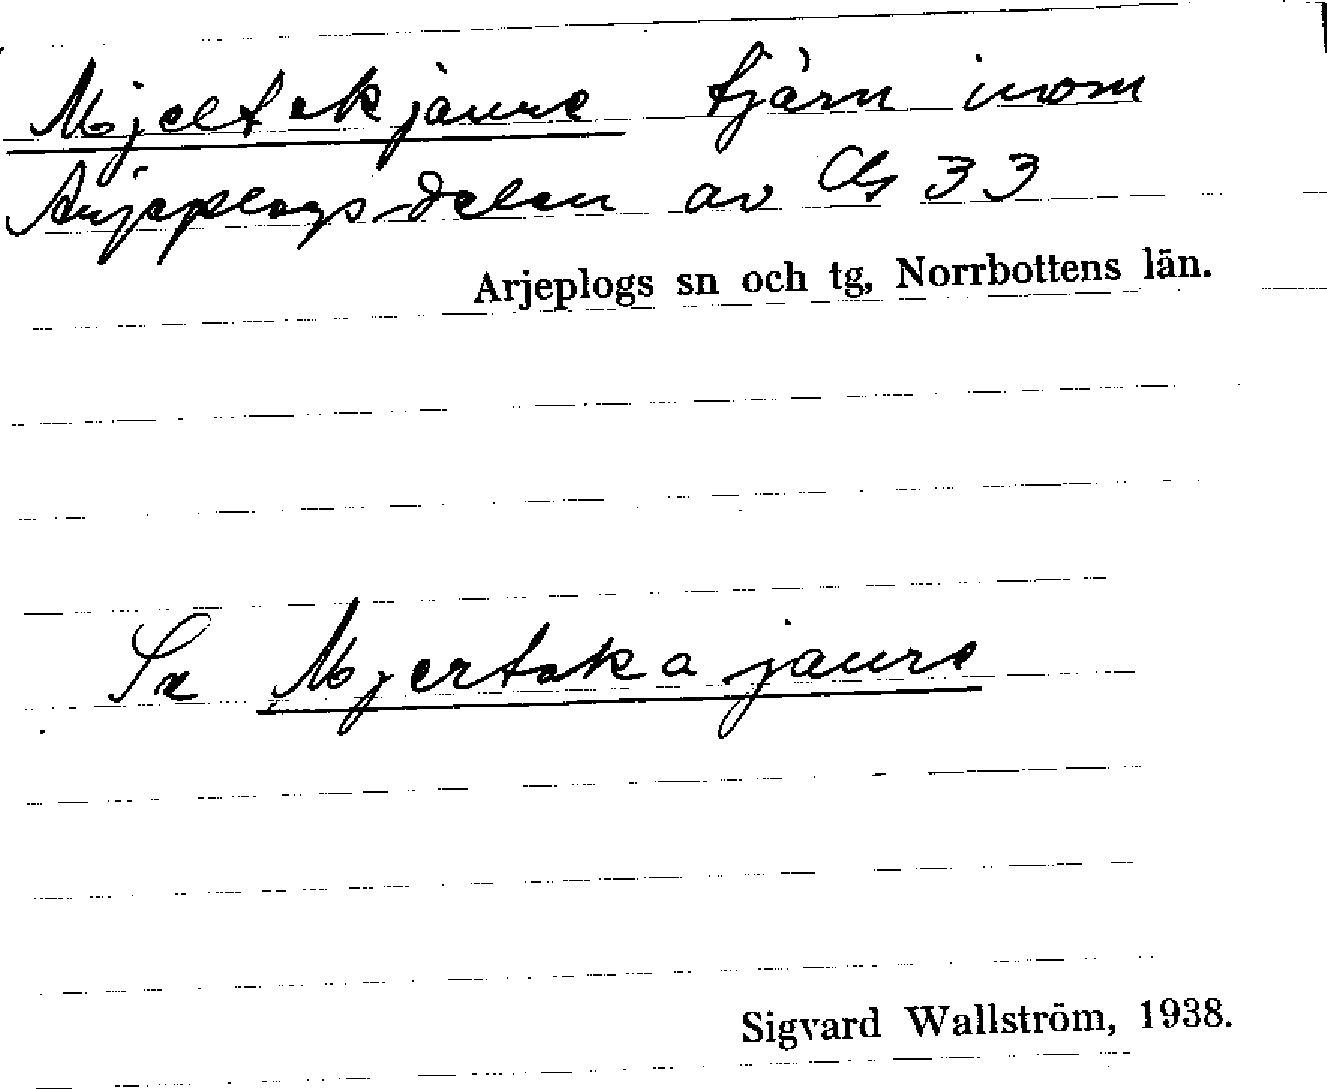 Mjeltekjaure tjärn inom
Arjeplogs-delen av Cls 33
Arjeplogs sn och tg, Norrbottens län.
Se Mjertekajaure
Sigvard Wallström, 1938.